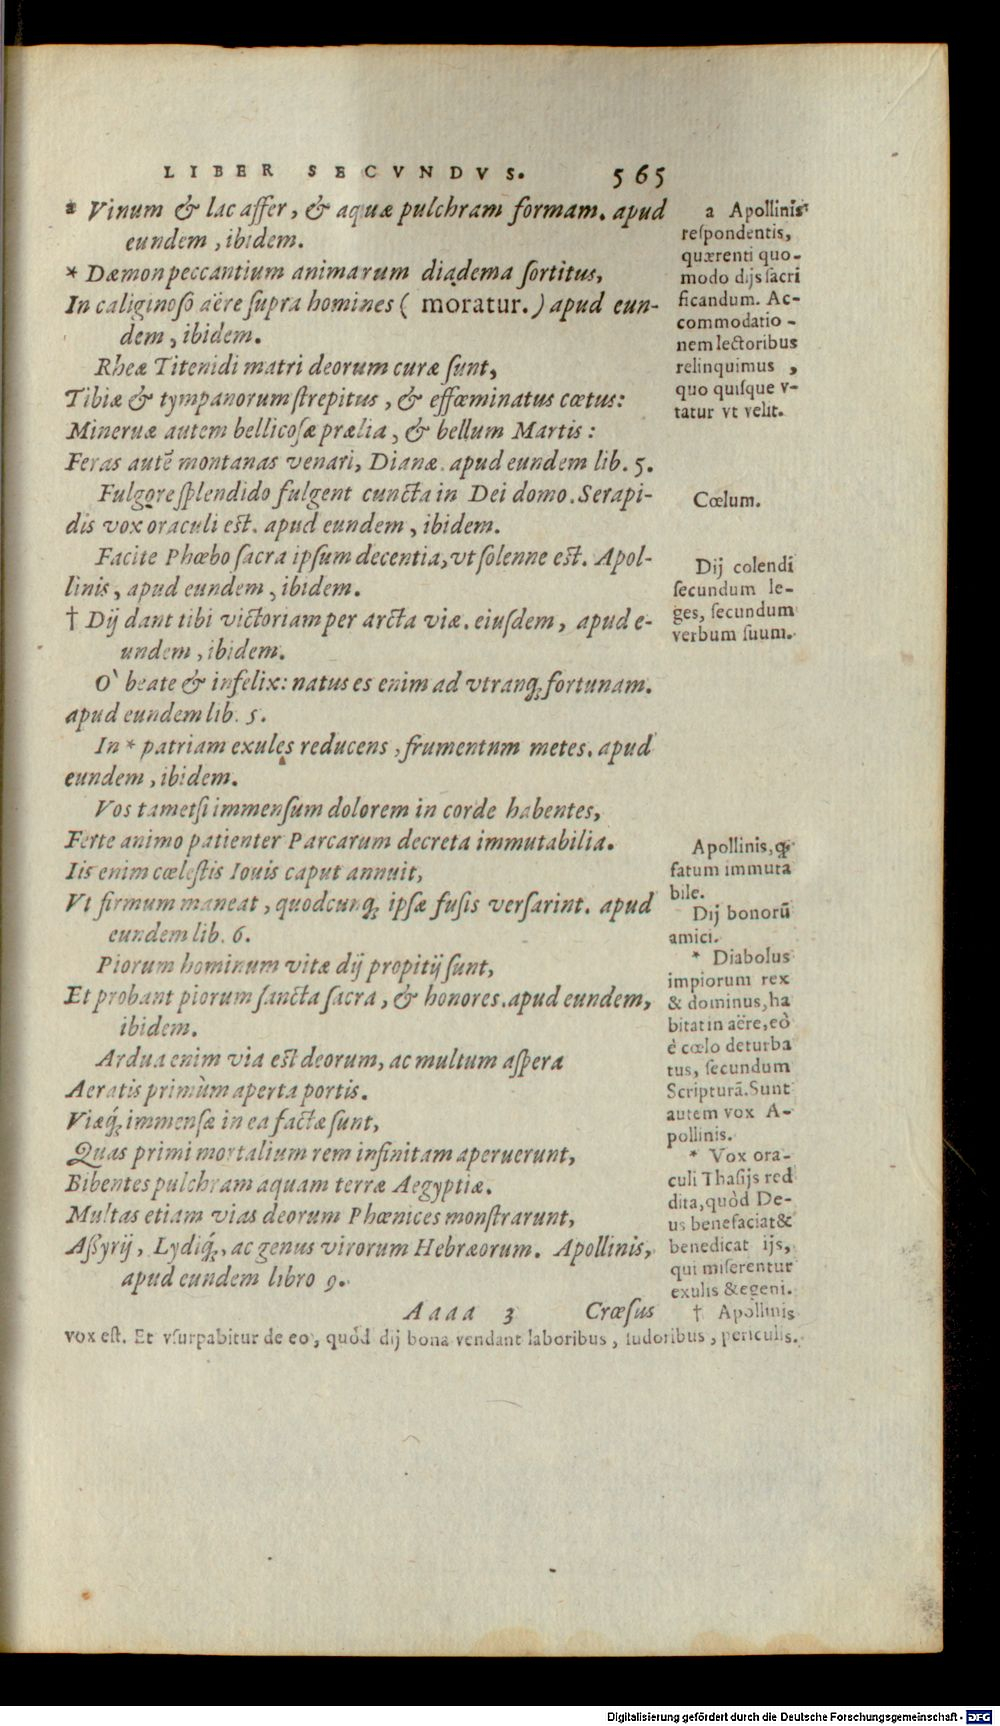 LIBER SECVNDVS. 565
a Vinum & lac affer, & aquæ pulchram formam. apud
eundem, ibidem.
* Dæmon peccantium animarum diadema ſortitus,
In caliginoſo aëre ſupra homines ( moratur.) apud eun-
dem, ibidem.
Rheæ Titenidi matri deorum curæ ſunt,
Tibiæ & tympanorum ſtrepitus, & effœminatus cœtus:
Mineruæ autem bellicoſæ prælia, & bellum Martis:
Feras autē montanas venari, Dianæ. apud eundem lib. 5.
Fulgore ſplendido fulgent cuncta in Dei domo. Serapi-
dis vox oraculi eſt. apud eundem, ibidem.
Facite Phœbo ſacra ipſum decentia, vt ſolenne eſt. Apol-
linis, apud eundem, ibidem.
† Dij dant tibi victoriam per arcta viæ. eiuſdem, apud e-
undem, ibidem.
O` beate & infelix: natus es enim ad vtranq; fortunam.
apud eundem lib. 5.
In * patriam exules reducens, frumentnm metes. apud
eundem, ibidem.
Vos tametſi immenſum dolorem in corde habentes,
Ferte animo patienter Parcarum decreta immutabilia.
Iis enim cœleſtis Iouis caput annuit,
Vt firmum maneat, quodcunq; ipſæ fuſis verſarint. apud
eundem lib. 6.
Piorum hominum vitæ dij propitij ſunt,
Et probant piorum ſancta ſacra, & honores. apud eundem,
ibidem.
Ardua enim via eſt deorum, ac multum aſpera
Aeratis primùm aperta portis.
Viæq́; immenſæ in ea factæ ſunt,
Quas primi mortalium rem infinitam aperuerunt,
Bibentes pulchram aquam terræ Aegyptiæ.
Multas etiam vias deorum Phœnices monſtrarunt,
Aßyrij, Lydiq́;, ac genus virorum Hebræorum. Apollinis,
apud eundem libro 9.
Aaaa 3 Crœſus
a Apollinis
reſpondentis,
quærenti quo-
modo dijs ſacri
ficandum. Ac-
commodatio-
nem lectoribus
relinquimus,
quo quiſque v-
tatur vt velit.
Cœlum.
Dij colendi
ſecundum le-
ges, ſecundum
verbum ſuum.
Apollinis, qƺ
fatum immuta
bile.
Dij bonorū
amici.
* Diabolus
impiorum rex
& dominus, ha
bitat in aëre, eò
è cœlo deturba
tus, ſecundum
Scripturā. Sunt
autem vox A-
pollinis.
* Vox ora-
culi Thaſijs red
dita, quòd De-
us benefaciat &
benedicat ijs,
qui miſerentur
exulis & egeni.
† Apollinis
vox eſt. Et vſurpabitur de eo, quòd dij bona vendant laboribus, ſudoribus, periculis.
Digitalisierung gefördert durch die Deutsche Forschungsgemeinschaft - DFG